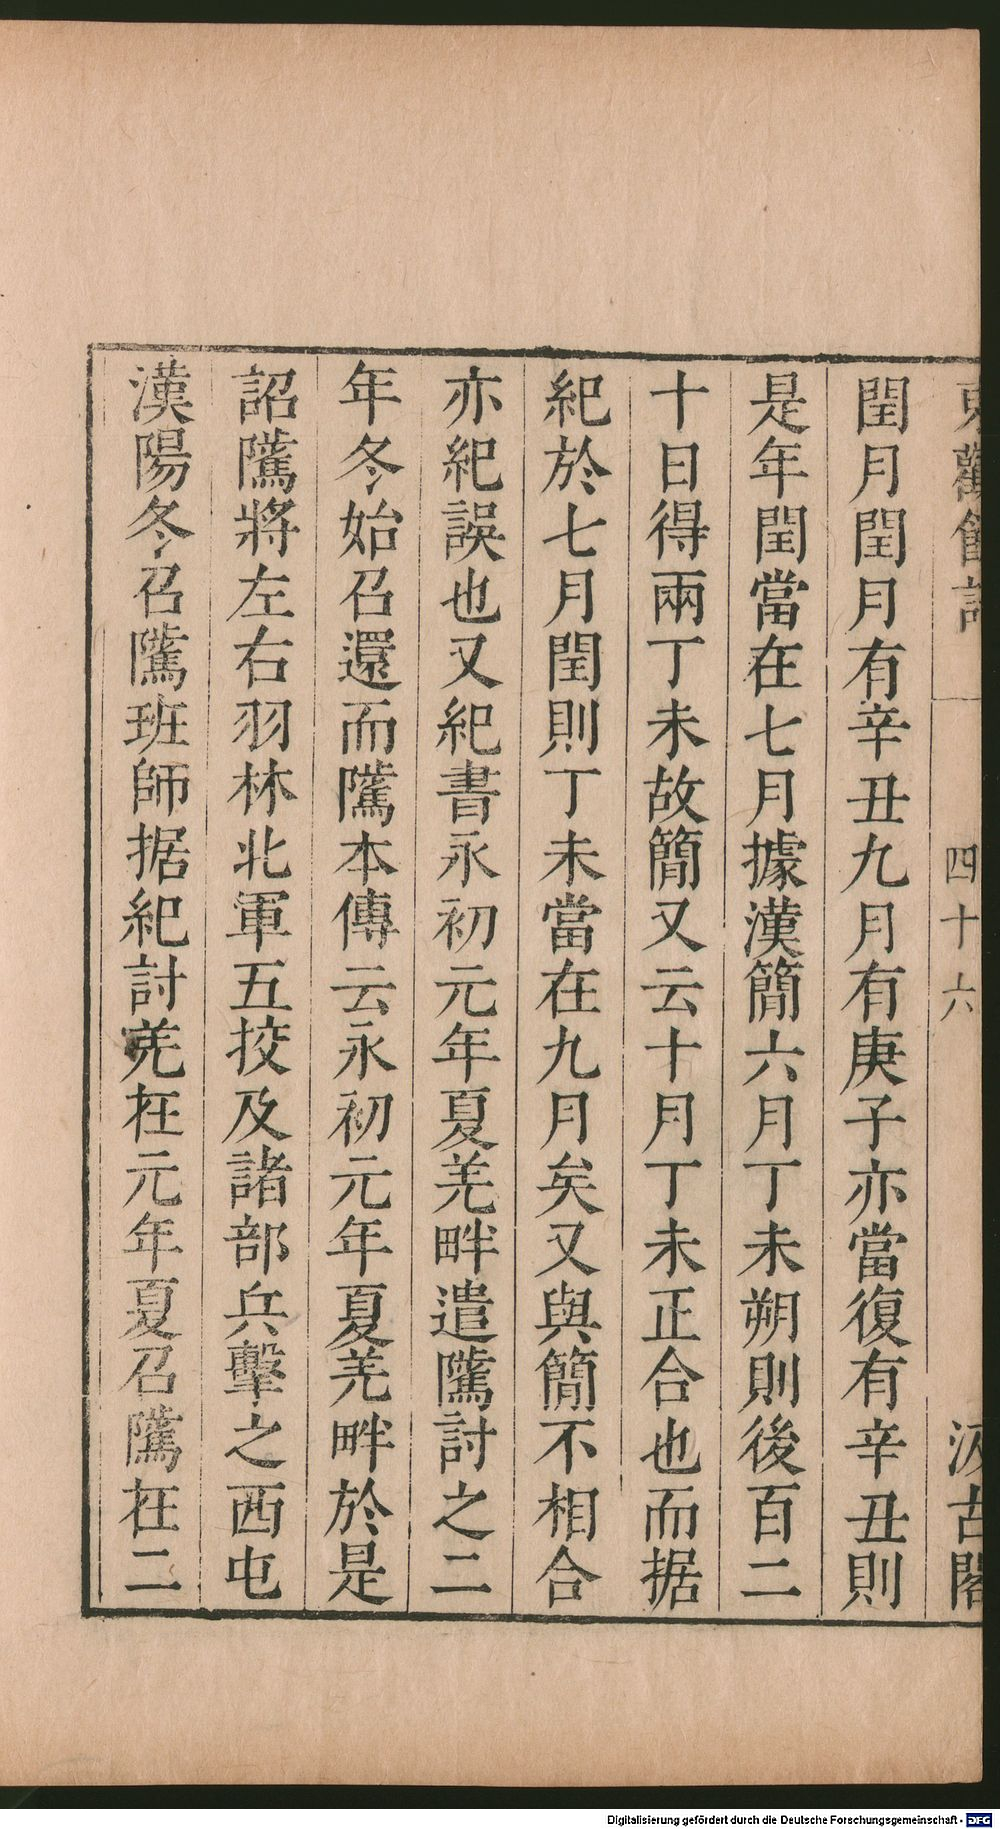 東觀餘論
四十六
汲古閣
閏月閏月有辛丑九月有庚子亦當復有辛丑則
是年閏當在七月據漢簡六月丁未朔則後百二
十日得兩丁未故簡又云十月丁未正合也而据
紀於七月閏則丁未當在九月矣又與簡不相合
亦紀誤也又紀書永初元年夏羌畔遣隲討之二
年冬始召還而隲本傳云永初元年夏羌畔於是
詔隲將左右羽林北軍五挍及諸部兵擊之西屯
漢陽冬召隲班師据紀討羌在元年夏召隲在二
Digitalisierung gefördert durch die Deutsche Forschungsgemeinschaft - DFG